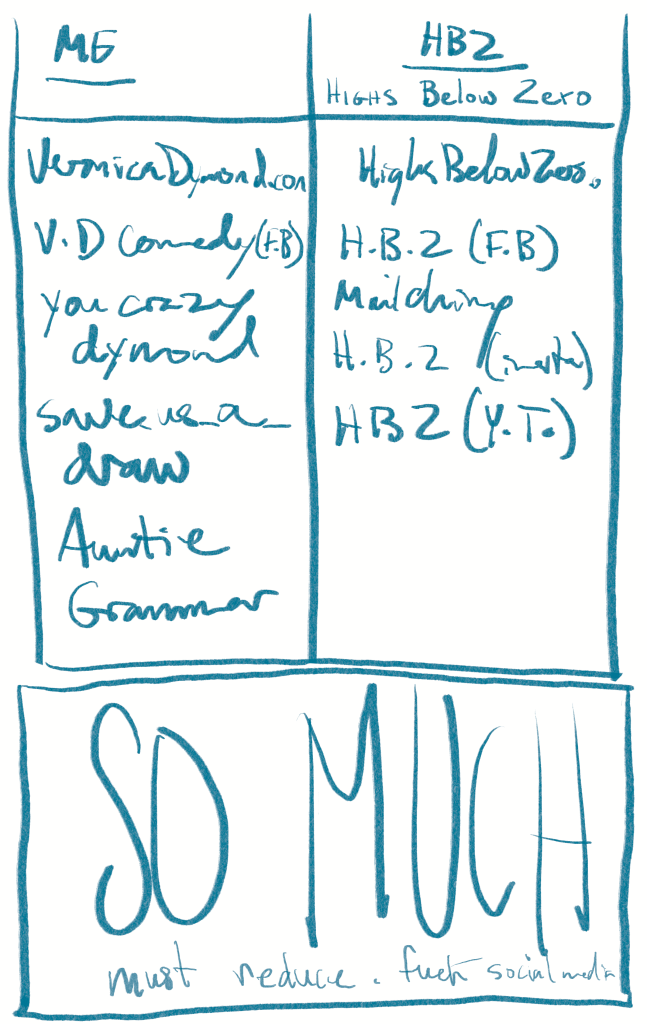 ME
VeronicaDymond.com
V.D Comedy (F.B)
you crazy
dymond
save_us_a_
draw
Auntie
Grammar
HBZ
HIGHS Below Zero
HighsBelowZero.
H.B.Z (F.B)
Mailchimp
H.B.Z (insta)
HBZ (Y.T.)
SO MUCH
must reduce. fuck social media